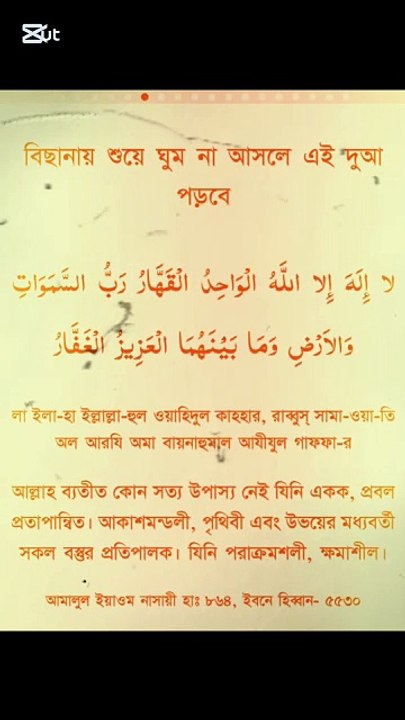 Cut
বিছানায় শুয়ে ঘুম না আসলে এই দুআ
পড়বে
لا إِلَهَ إِلا اللَّهُ الْوَاحِدُ الْقَهَّارُ رَبُّ السَّمَوَاتِ
وَالأَرْضِ وَمَا بَيْنَهُمَا الْعَزِيزُ الْغَفَّارُ
লা ইলা-হা ইল্লাল্লা-হুল ওয়াহিদুল কাহহার, রাব্বুস্ সামা-ওয়া-তি
অল আরযি অমা বায়নাহুমাল আযীযুল গাফফা-র
আল্লাহ ব্যতীত কোন সত্য উপাস্য নেই যিনি একক, প্রবল
প্রতাপান্বিত। আকাশমন্ডলী, পৃথিবী এবং উভয়ের মধ্যবর্তী
সকল বস্তুর প্রতিপালক। যিনি পরাক্রমশলী, ক্ষমাশীল।
আমালুল ইয়াওম নাসায়ী হাঃ ৮৬৪, ইবনে হিব্বান- ৫৫৩০